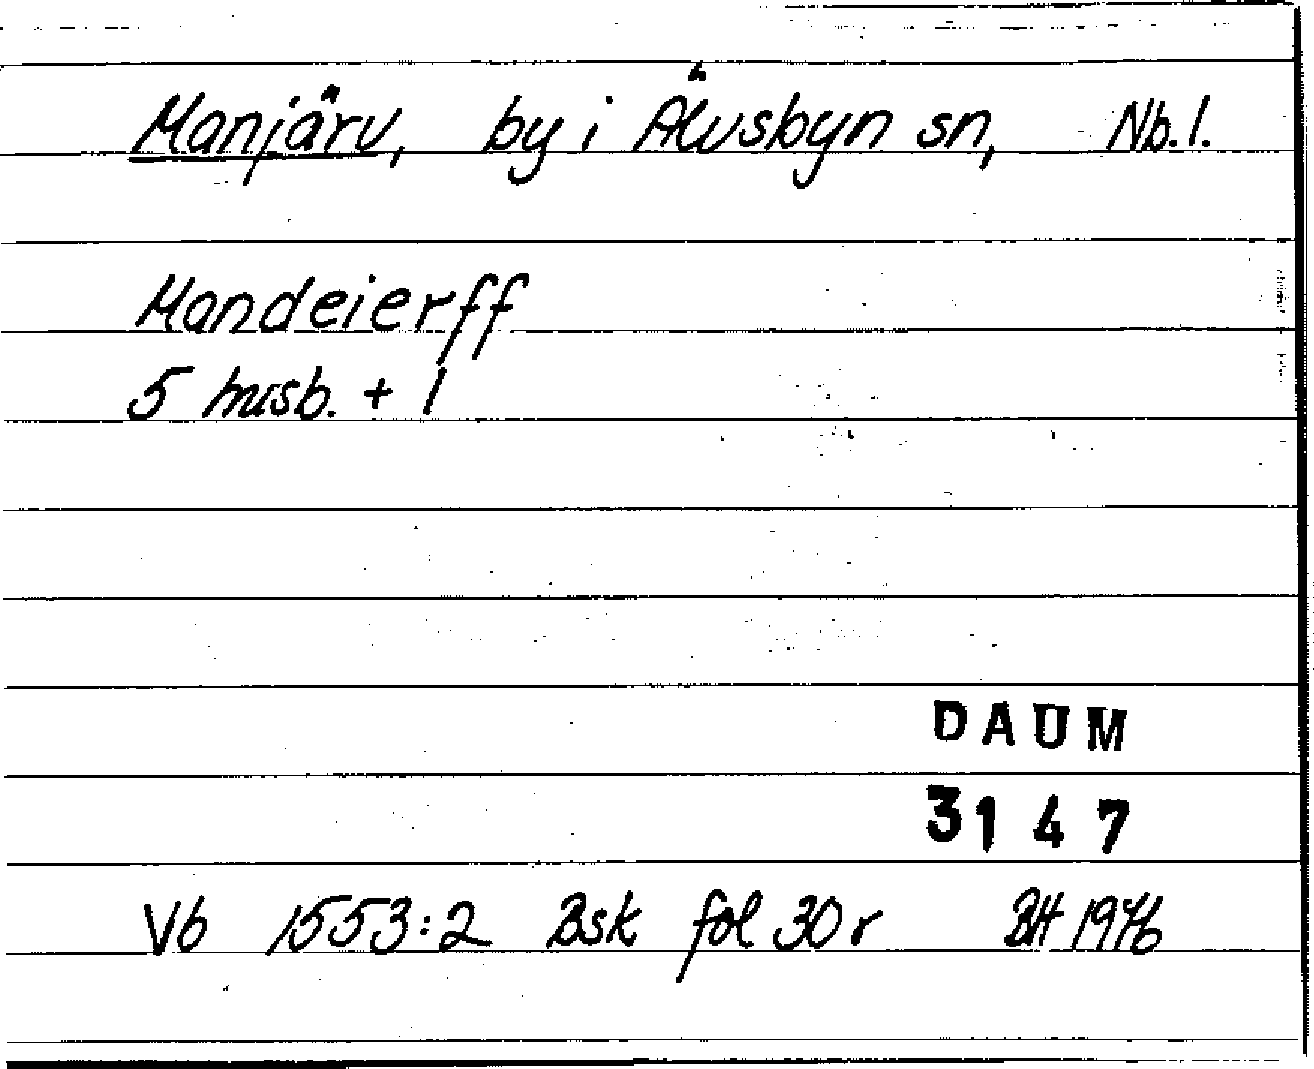 Manjärv, by i Älvsbyn sn, Nb. l.
Mandeierff
5 husb. + 1
DAUM
3147
Vb 1553:2 Bsk fol 30 r BH 1976